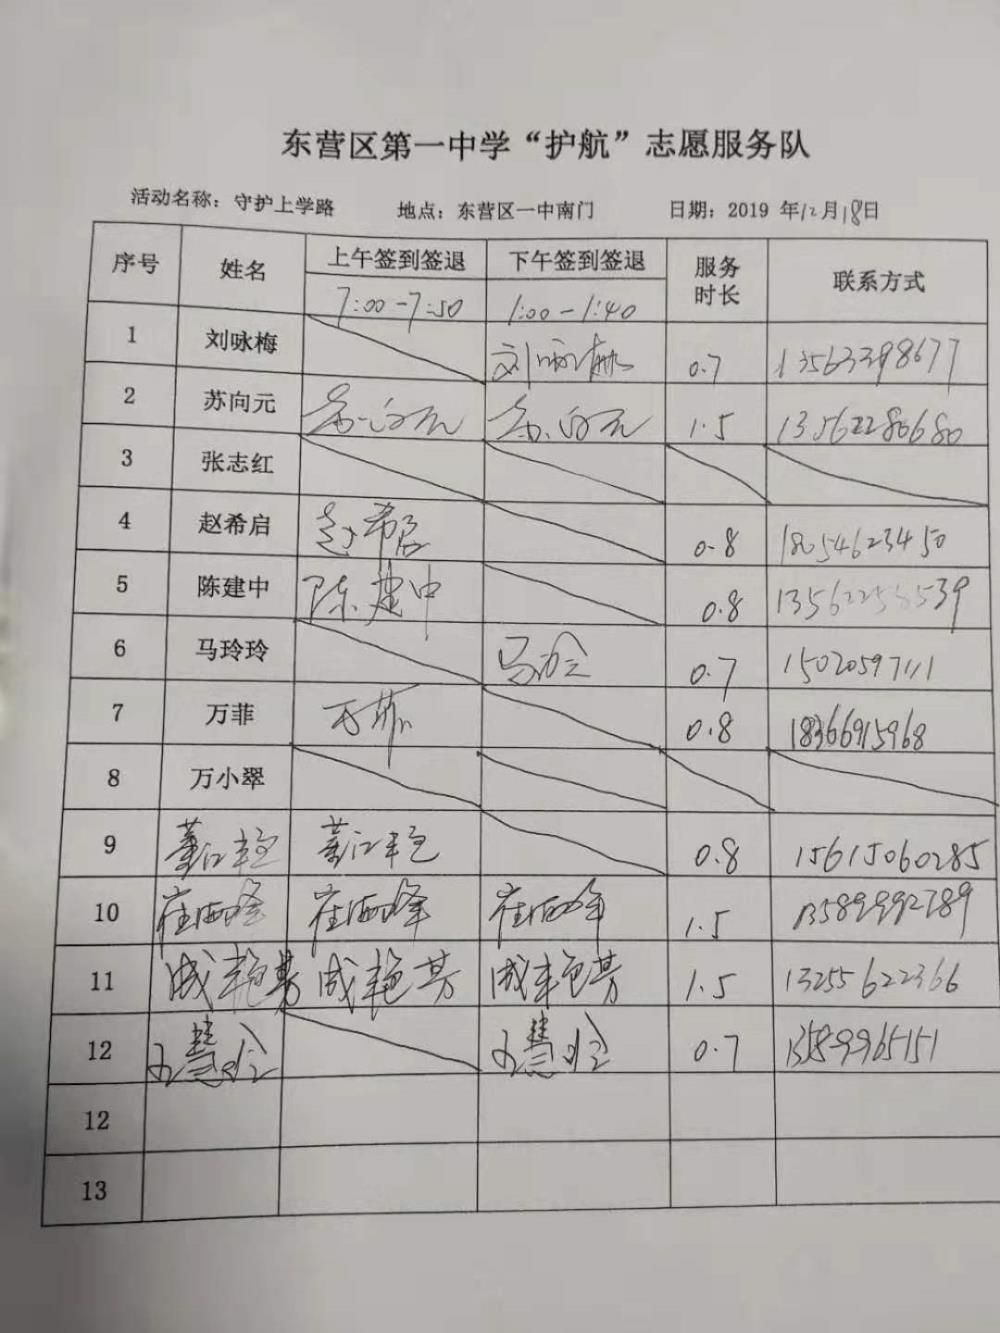 东营区第一中学“护航”志愿服务队
活动名称：守护上学路 地点：东营区一中南门 日期：2019 年12月18日
序号 姓名 上午签到签退 下午签到签退 服务时长 联系方式
7:00-7:50 1:00-1:40
1 刘咏梅 刘咏梅 0.7 13563398677
2 苏向元 苏向元 苏向元 1.5 13562280680
3 张志红
4 赵希启 赵希启 0.8 18054623450
5 陈建中 陈建中 0.8
6 马玲玲 0.7 15020597111
7 万菲 万菲 0.8 18366915968
8 万小翠
9 董江艳 董江艳 0.8 15615060285
10 崔西峰 崔西峰 崔西峰 1.5 13589992789
11 成艳芳 成艳芳 成艳芳 1.5 13255622366
12 0.7 13589965151
12
13